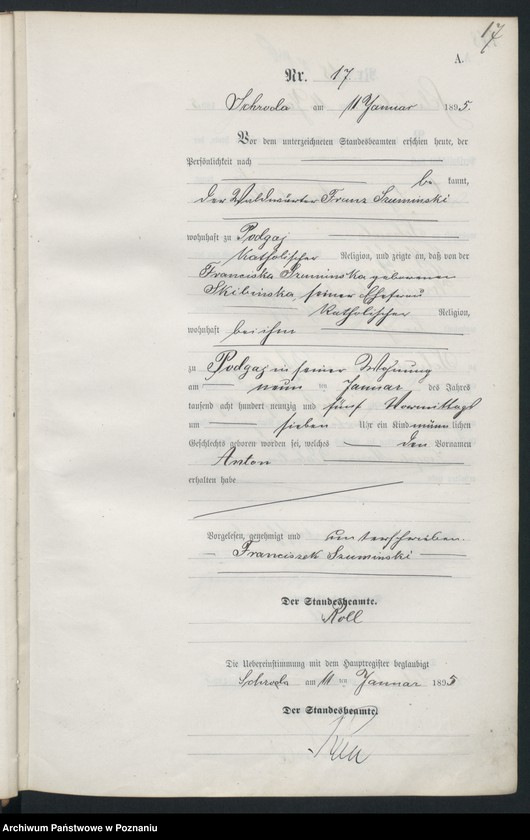 17
A.
Nr. 17.
Schroda am 11 Januar 1895.
Vor dem unterzeichneten Standesbeamten erschien heute, der
Persönlichkeit nach
be kannt,
der Waldwärter Franz Szuminski
wohnhaft zu Podgaj
Katholischer Religion, und zeigte an, daß von der
Franciska Szuminska geborenen
Skibinska, seiner Ehefrau
Katholischer Religion,
wohnhaft bei ihm
zu Podgaj in seiner Wohnung
am neun ten Januar des Jahres
tausend acht hundert neunzig und fünf Vormittags
um sieben Uhr ein Kind männ lichen
Geschlechts geboren worden sei, welches den Vornamen
Anton
erhalten habe
Vorgelesen, genehmigt und unterschrieben.
Franciszek Szuminski
Der Standesbeamte.
Roll
Die Uebereinstimmung mit dem Hauptregister beglaubigt
Schroda am 11 ten Januar 1895
Der Standesbeamte.
Archiwum Państwowe w Poznaniu